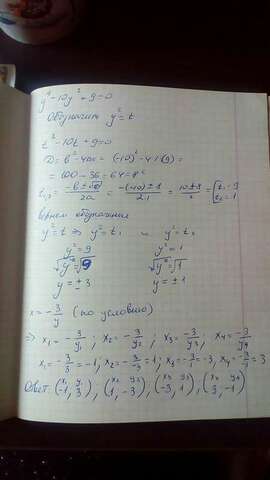 y⁴-10y²+9=0
Обозначим y²=t
t²-10t+9=0
D=b²-4ac=(-10)²-4·1·(9)=
=100-36=64=8²
t₁,₂=(-b±√D)/2a=(-(-10)±8)/2·1=(10±8)/2=[t₁=9 t₂=1
y²=t⇒y²=t₁ и y²=t₂
y²=9 y²=1
√y²=√9 √y²=√1
y=±3 y=±1
x=-3/y (по условию)
⇒x₁=-3/y₁; x₂=-3/y₂; x₃=-3/y₃; x₄=-3/y₄
x₁=-3/3=-1; x₂=-3/-3=1; x₃=-3/1=-3, x₄=-3/-1=3
Ответ: (x₁ y₁ -1, 3), (x₂ y₂ 1, -3), (x₃ y₃ -3, 1), (x₄ y₄ 3, -1)